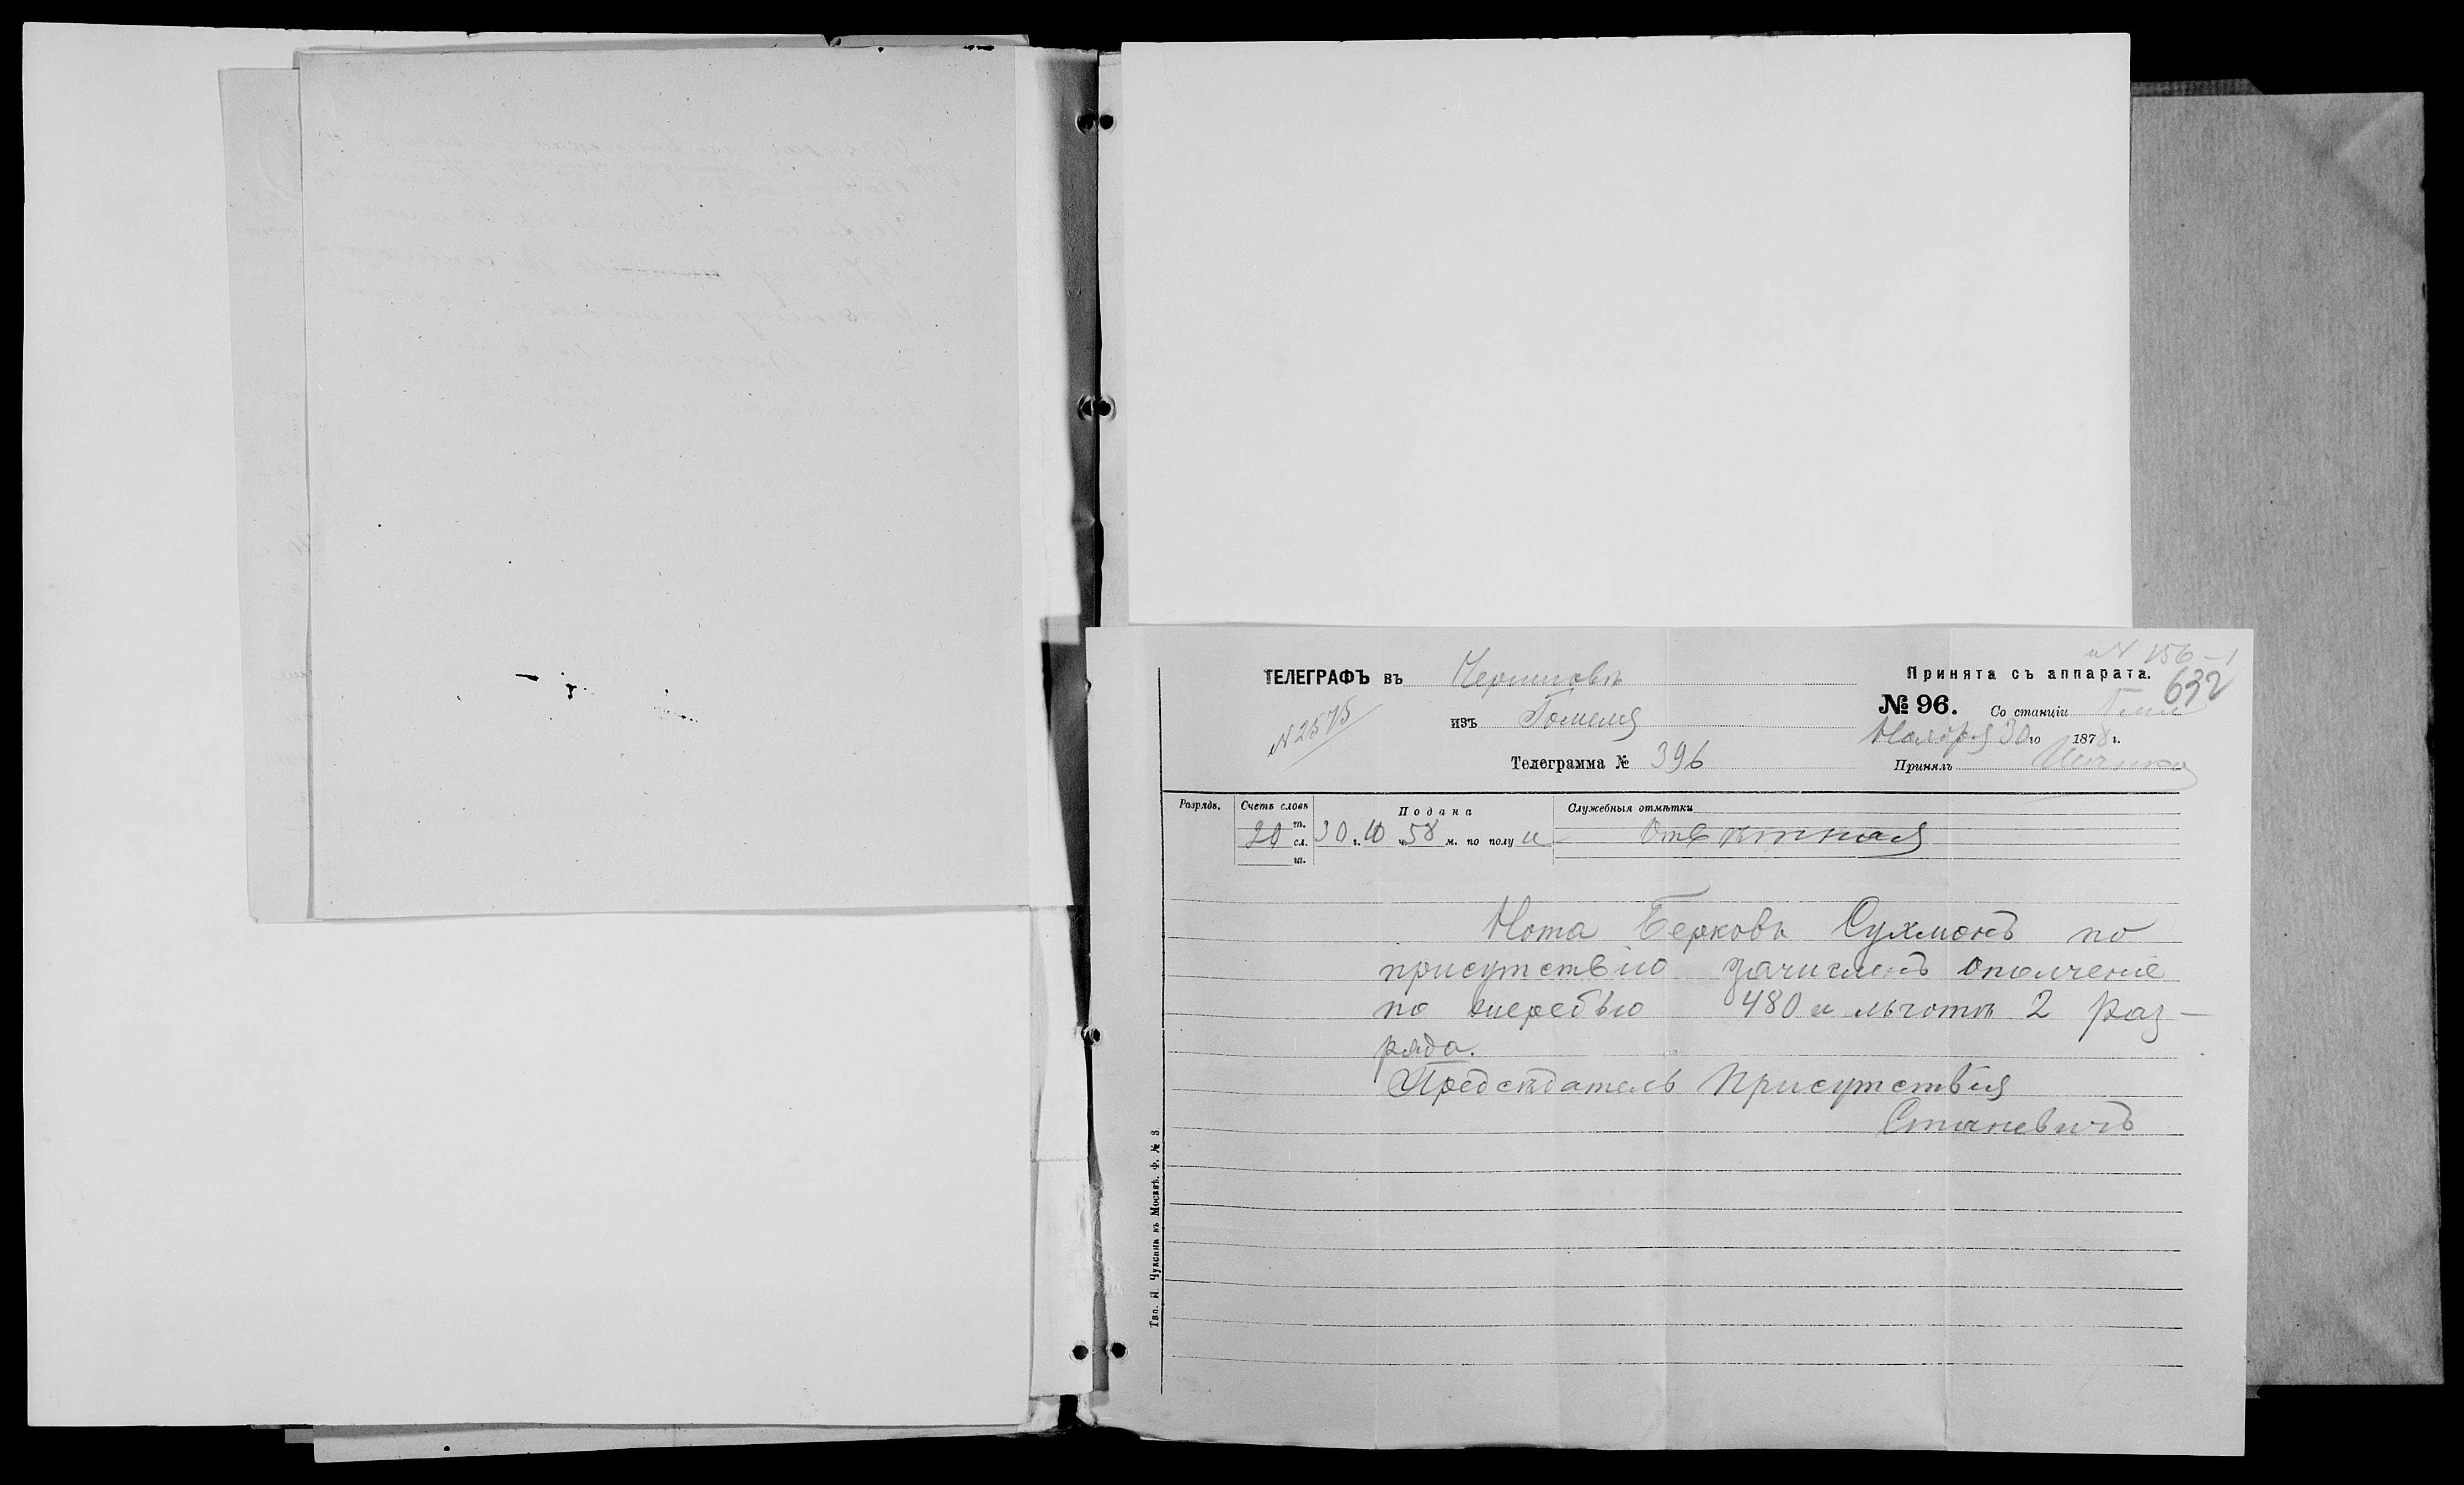 № 156
632
ТЕЛЕГРАФЪ въ Черниговъ
Принята съ аппарата.
№ 2575
изъ Гомеля
№ 96. Со станціи
Ноября 30го 1878 г.
Телеграмма № 396
Принялъ
Разрядъ. Счетъ словъ Подана Служебныя отмѣтки
т.
20 сл. 30 г. 10 ч. 58 м. по полу н Отвѣтная
ш.
Нота Берковъ Сухманъ по
присутствію зачисленъ ополченіе
по жеребью 480 и льготѣ 2 раз-
ряда.
Предсѣдатель Присутствія
Станевичъ
Тип. И. Чуксина въ Москвѣ. Ф. № 3